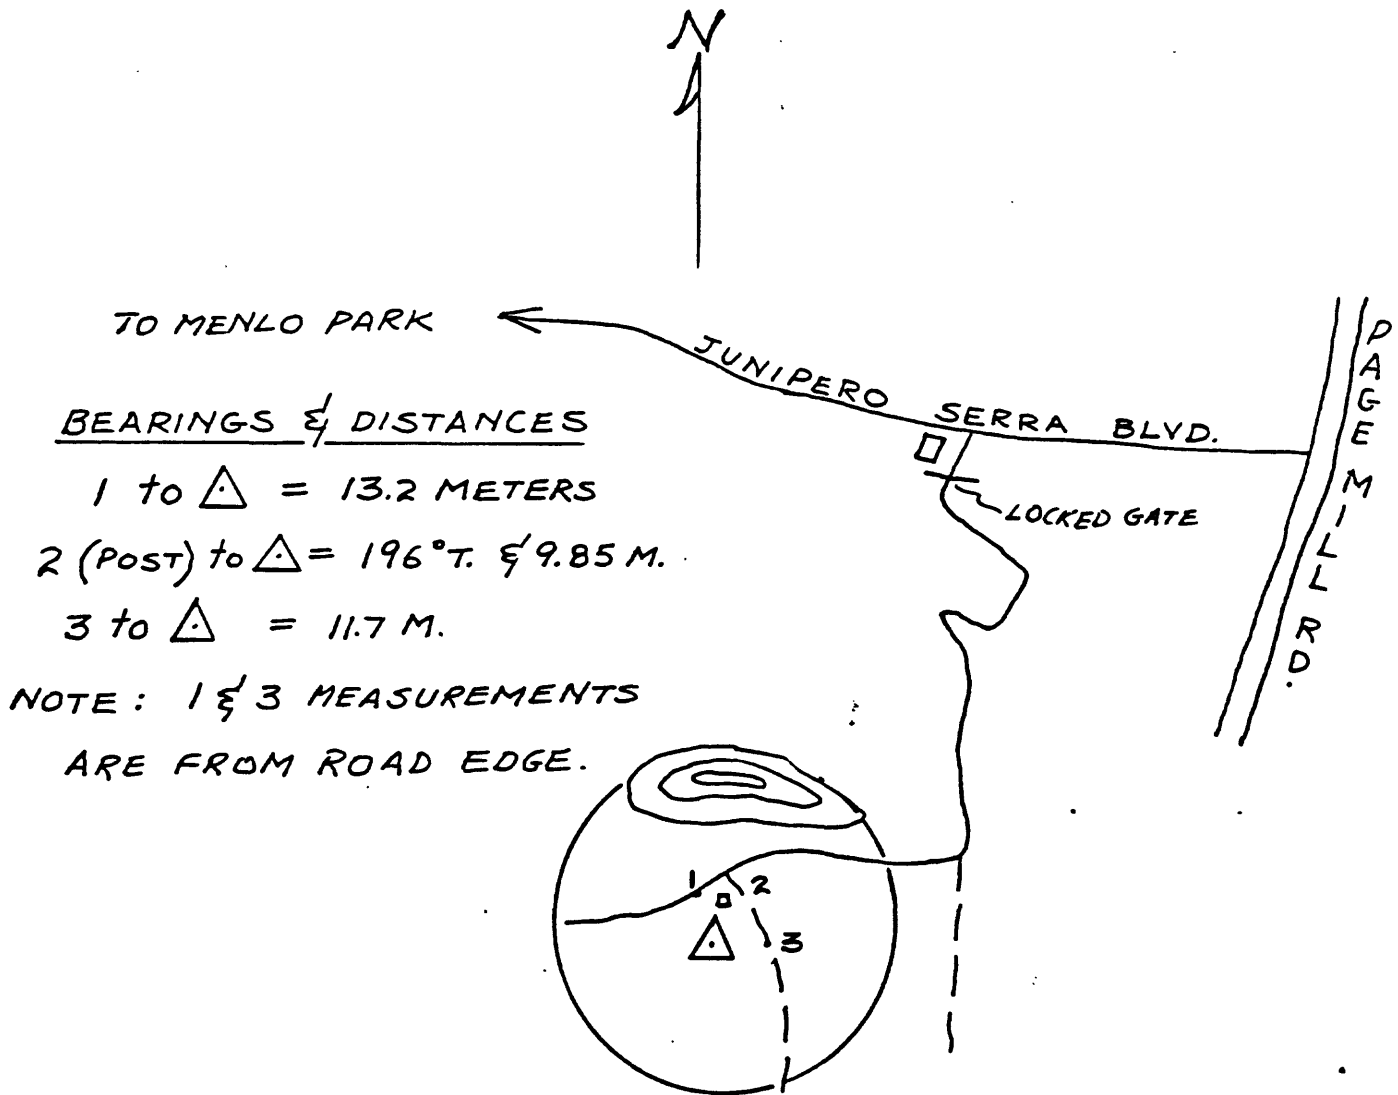 N
TO MENLO PARK
JUNIPERO SERRA BLVD.
PAGE MILL RD.
BEARINGS & DISTANCES
1 to △ = 13.2 METERS
2 (POST) to △ = 196°T. & 9.85 M.
3 to △ = 11.7 M.
NOTE: 1 & 3 MEASUREMENTS
ARE FROM ROAD EDGE.
LOCKED GATE
1
2
3